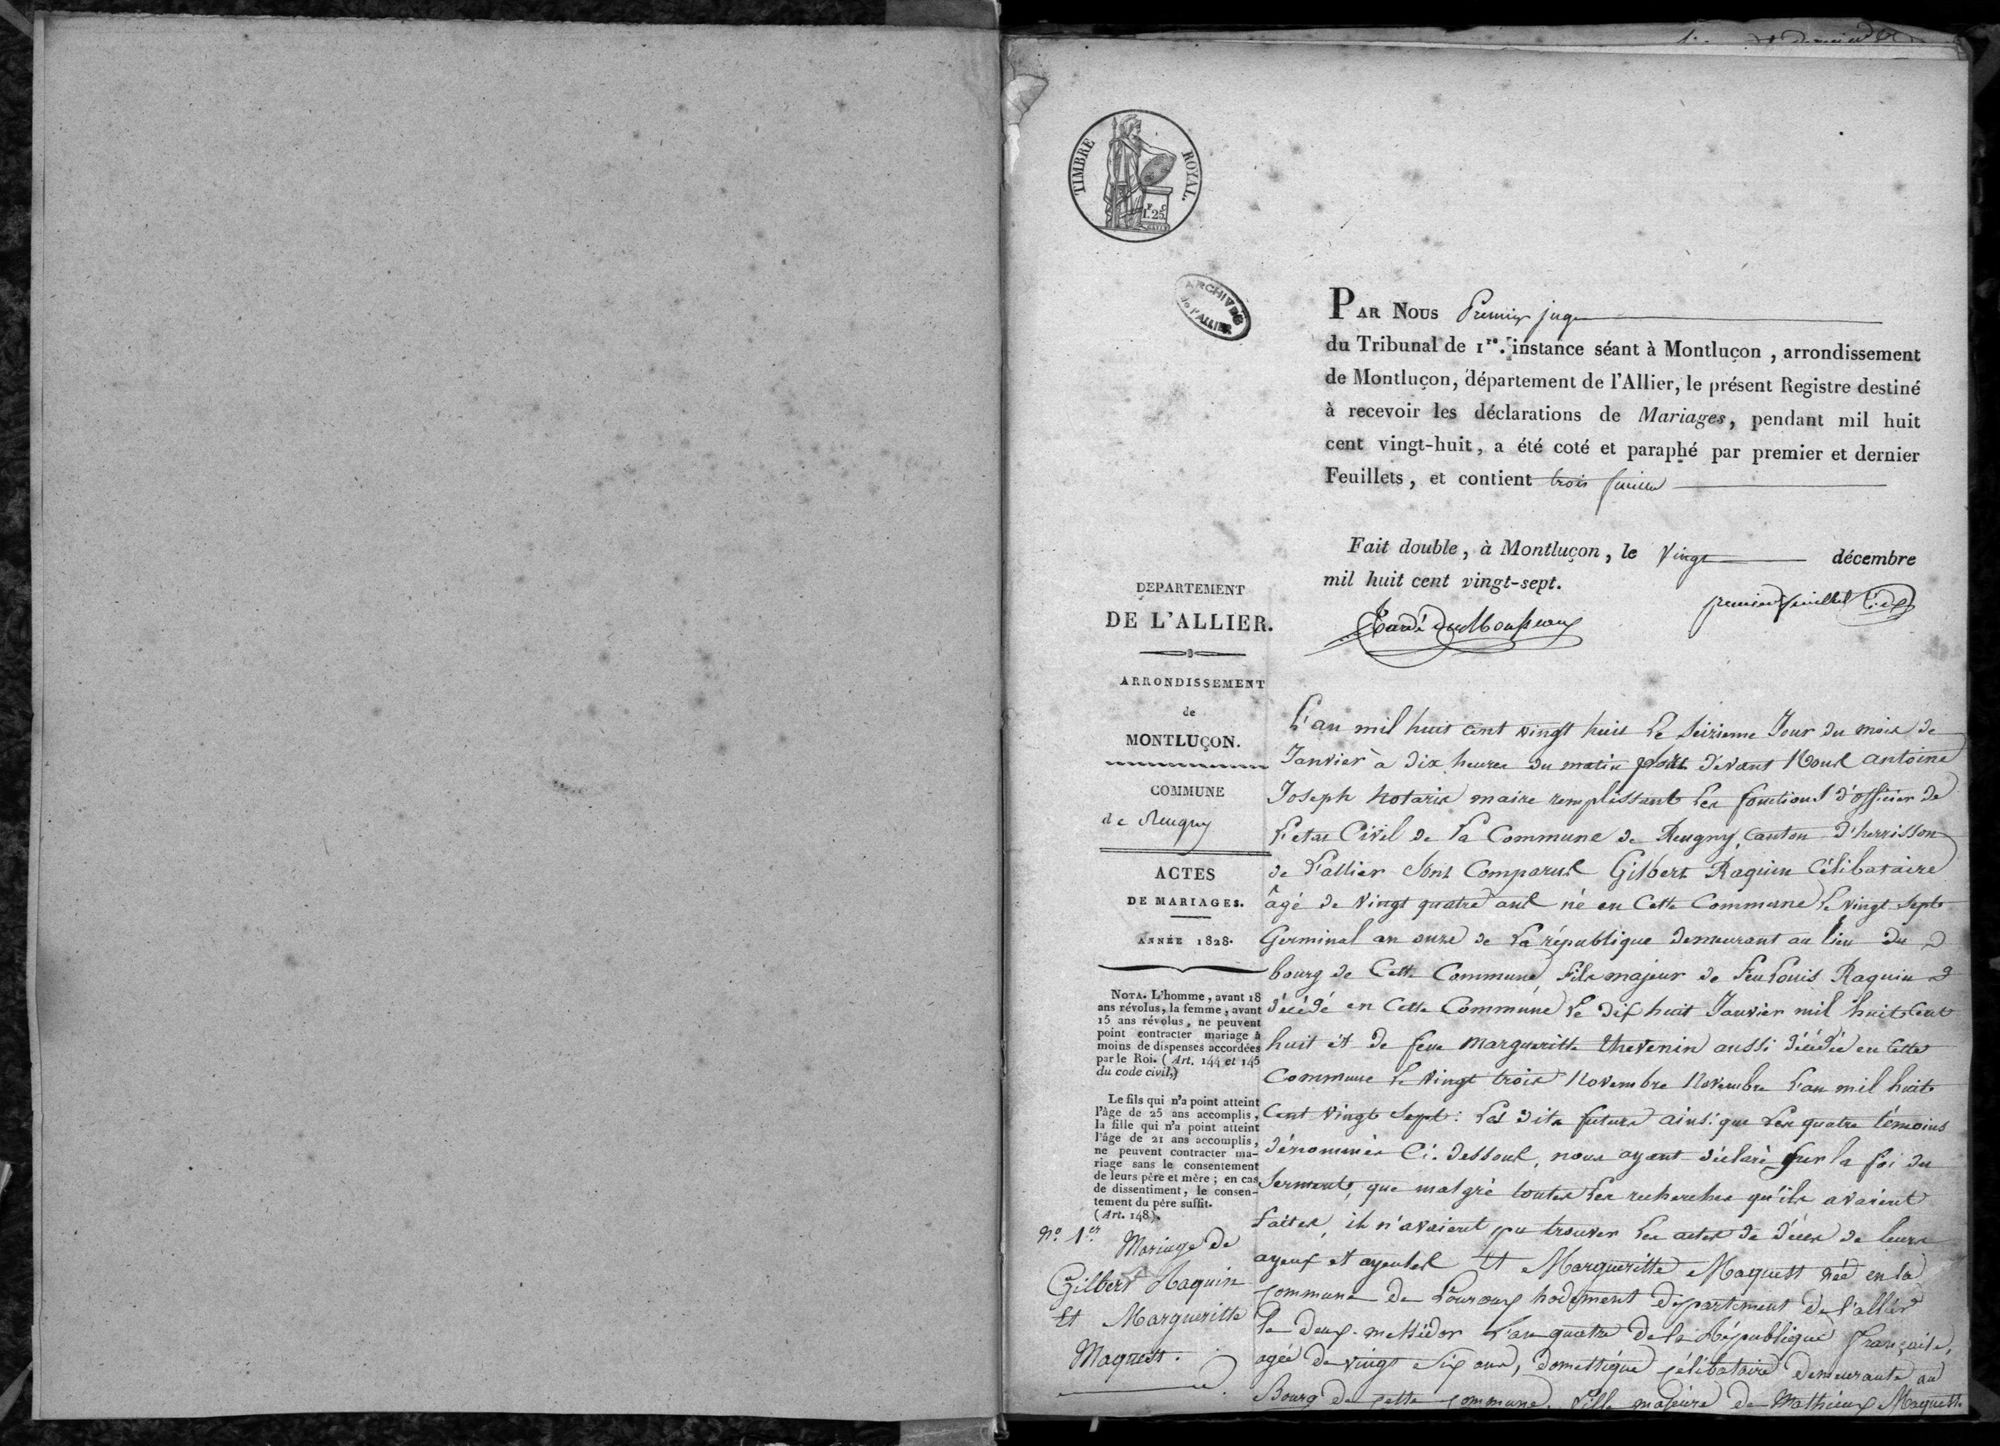 TIMBRE ROYAL.
F. C
1. 25.
ARCHIVES
de l'ALLIER
PAR NOUS Premier juge
du Tribunal de 1re. instance séant à Montluçon, arrondissement
de Montluçon, département de l'Allier, le présent Registre destiné
à recevoir les déclarations de Mariages, pendant mil huit
cent vingt-huit, a été coté et paraphé par premier et dernier
Feuillets, et contient trois feuilles
Fait double, à Montluçon, le vingt décembre
mil huit cent vingt-sept.
premier feuillet
DEPARTEMENT
DE L'ALLIER.
ARRONDISSEMENT
de
MONTLUÇON.
COMMUNE
de Reugny
ACTES
DE MARIAGES.
ANNÉE 1828.
NOTA. L'homme, avant 18
ans révolus, la femme, avant
15 ans révolus, ne peuvent
point contracter mariage à
moins de dispenses accordées
par le Roi. (Art. 144 et 145
du code civil.)
Le fils qui n'a point atteint
l'âge de 25 ans accomplis,
la fille qui n'a point atteint
l'âge de 21 ans accomplis,
ne peuvent contracter ma-
riage sans le consentement
de leurs père et mère; en cas
de dissentiment, le consen-
tement du père suffit.
(Art. 148).
No. 1er. Mariage de
Gilbert Raquin
Et Margueritte
Maquest.
L'an mil huit cent vingt huit Le Seizieme Jour du mois de
Janvier à dix heures du matin par devant Nous antoine
Joseph notaire maire remplissant Les fonctions d'officier de
L'etat Civil de La Commune de Reugny, Canton d'herisson
de L'allier Sont Comparus Gilbert Raquin Célibataire
âgé de vingt quatre ans né en Cette Commune Le vingt Sept
Germinal an onze de La république demeurant au lieu du
bourg de Cette Commune, fils majeur de feu Louis Raquin
décédé en Cette Commune Le dix huit Janvier mil huit Cent
huit et de feue Margueritte thevenin aussi décédée en Cette
Commune Le vingt trois Novembre Novembre L'an mil huit
Cent vingt Sept: Les dits futurs ainsi que Les quatre témoins
dénommés Ci. dessous, nous ayant déclaré sur la foi du
Serment, que malgré toutes Les recherches qu'ils avaient
faites, ils n'avaient pu trouver Les actes de décès de leurs
ayeux et ayeules Et Margueritte Maquest née en la
commune de Louroux hodement département de l'allier
le deux messidor L'an quatre de la République française,
agée de vingt six ans, domestique célibataire demeurante au
Bourg de cette commune, fille majeure de Mathieux Maquest